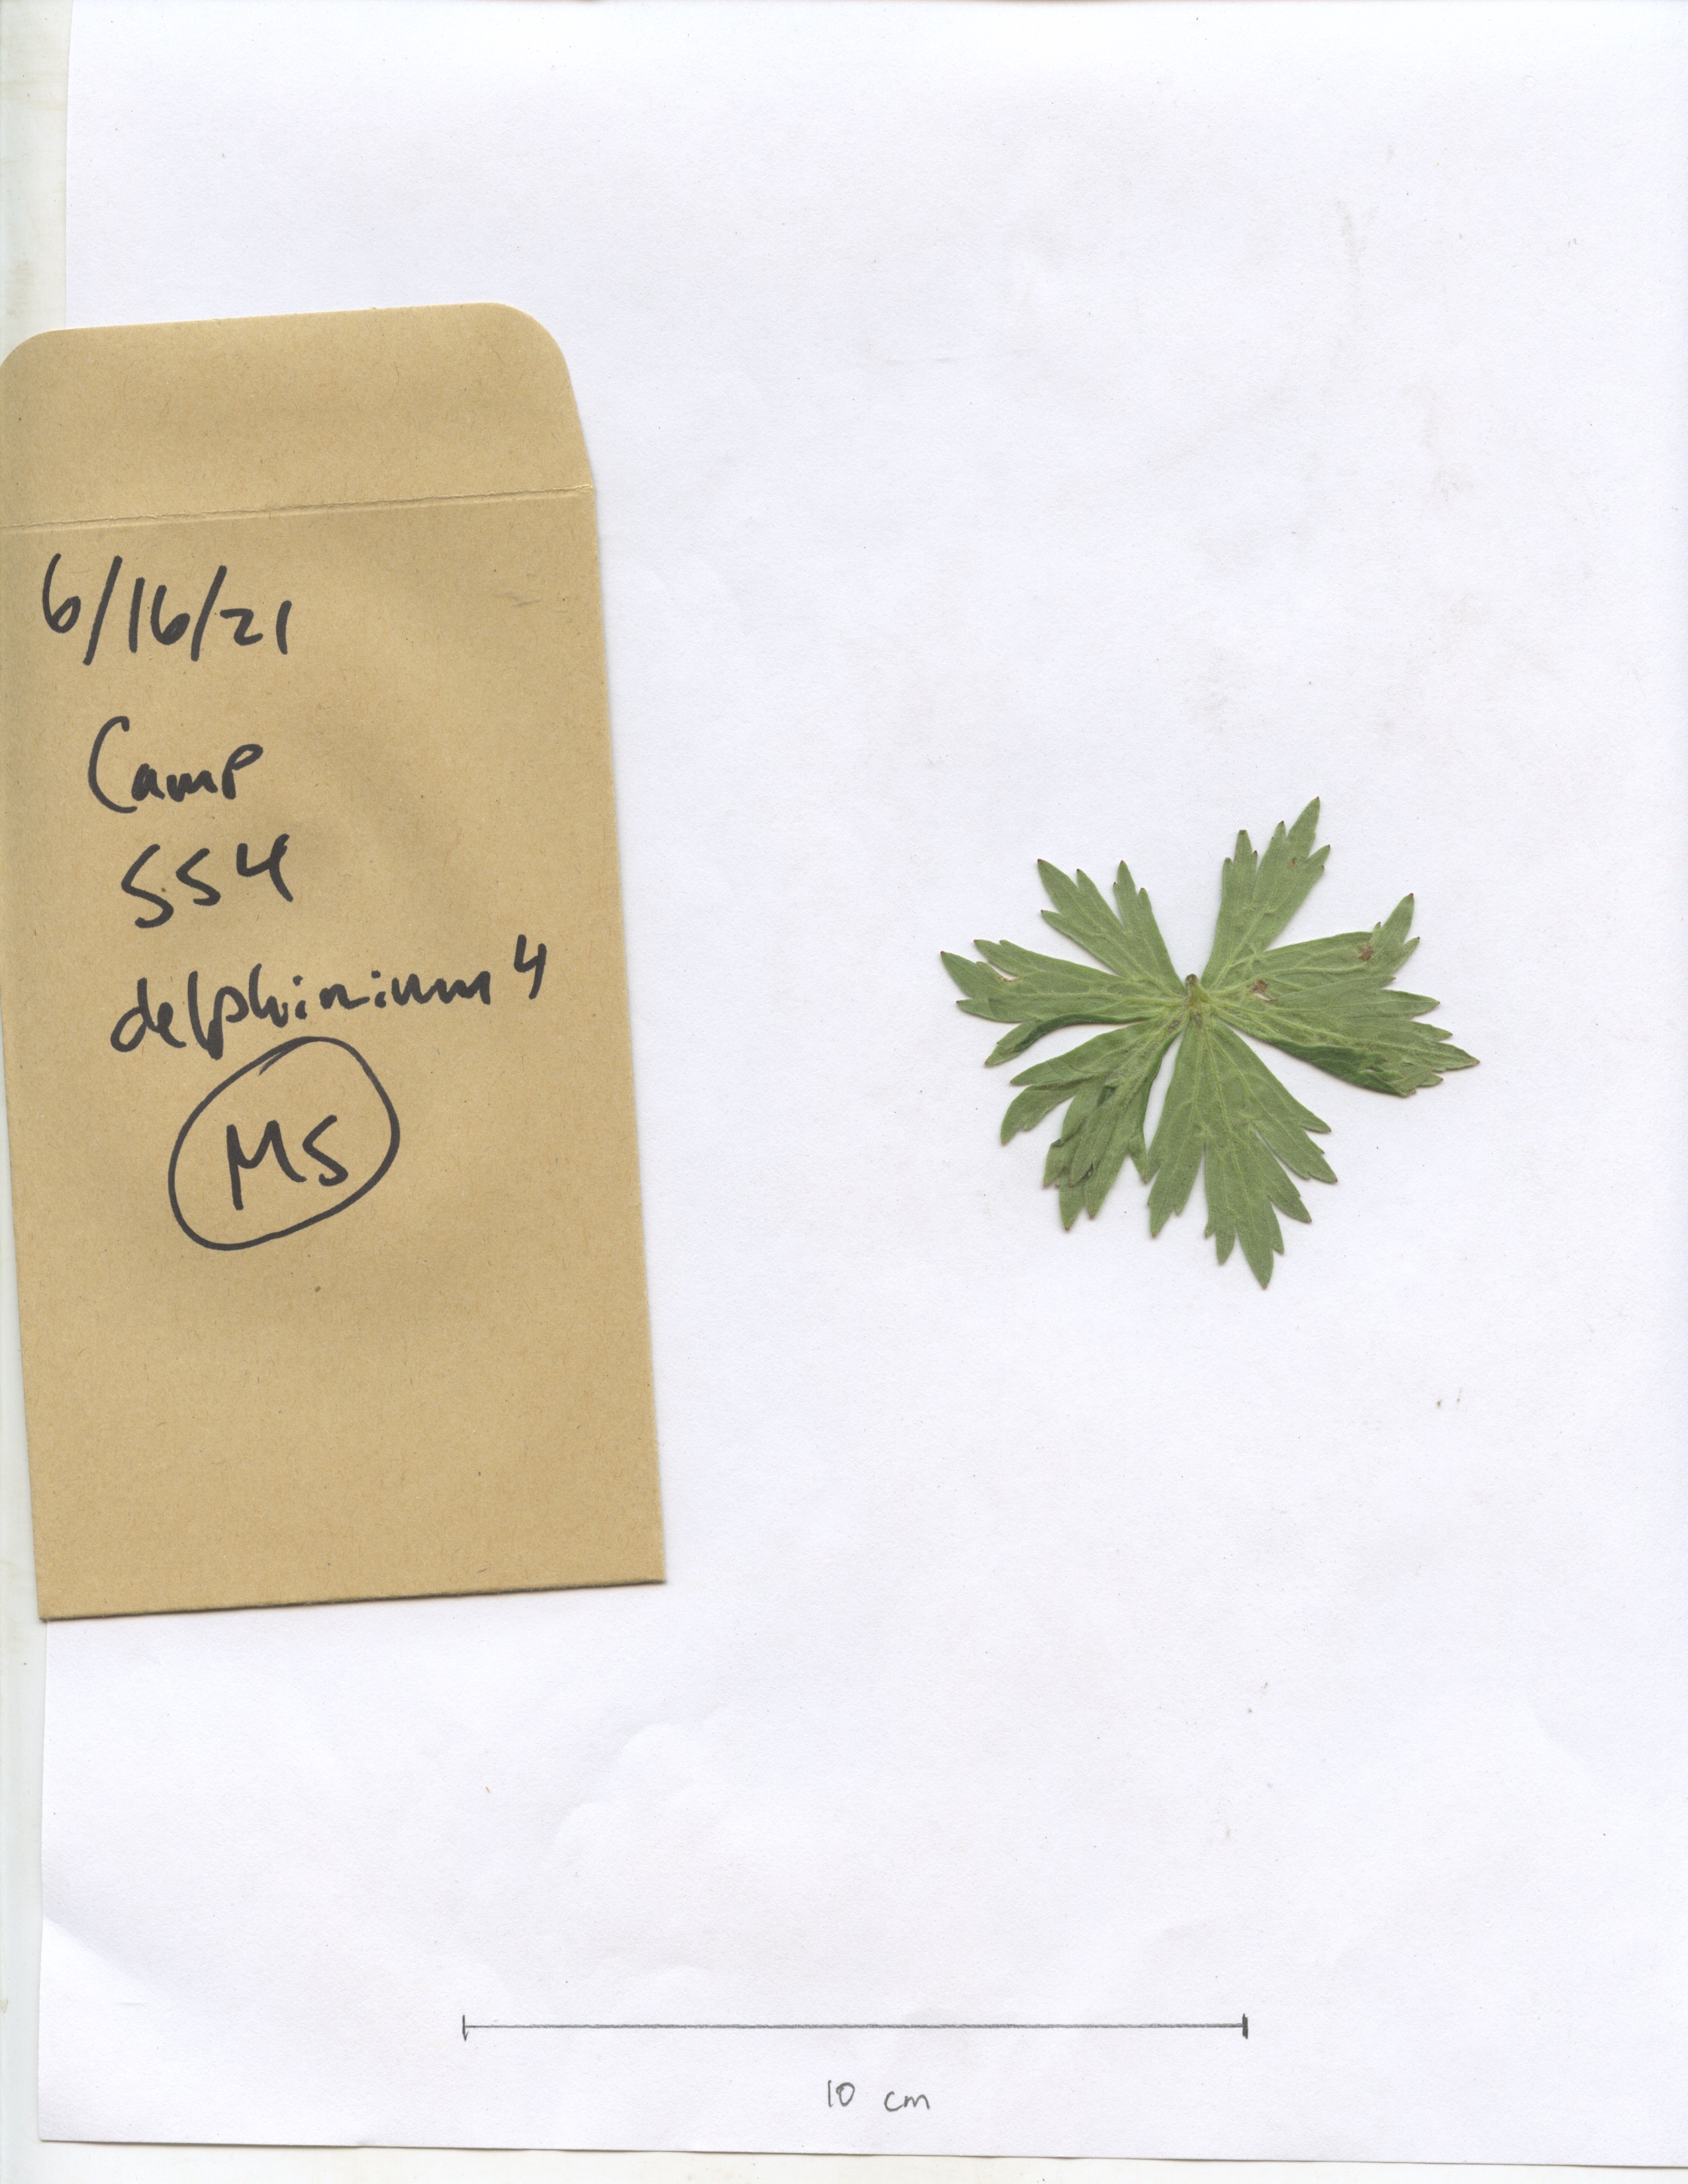 6/16/21
Camp
SS4
delphinium 4
MS
10 cm